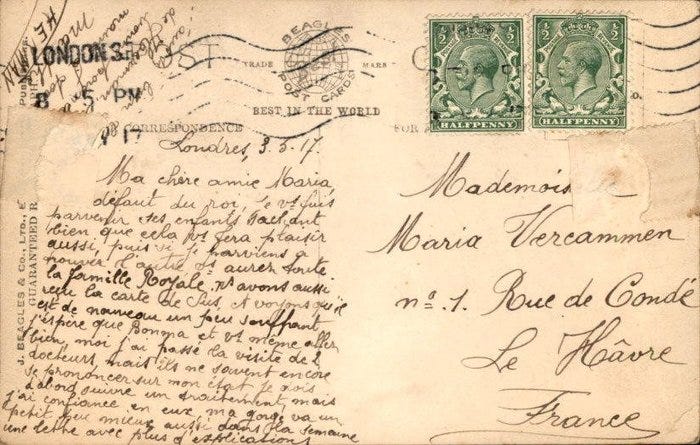 LONDON S.E.
8 5 PM
POST
TRADE MARK
BEAGLES
POST CARDS
BEST IN THE WORLD
CORRESPONDENCE
FOR
½ ½
HALFPENNY
½ ½
HALFPENNY
J. BEAGLES & CO., LTD., E
GUARANTEED R
Londres, 3.5.17.
Ma chère amie Maria,
défaut du roi, je vs fais
parvenir ses enfants sachant
bien que cela vs fera plaisir
aussi, puis si je parviens à
trouver l'autre vs aurez toute
la famille Royale. Ns avons aussi
reçu la carte de Sus, et voyons qu'il
est de nouveau un peu souffrant,
j'espère que Bonma et vs même allez
bien, moi j'ai passé la visite de 2
docteurs mais ils ne savent encore
se prononcer sur mon état je dois
d'abord suivre un traitement, mais
j'ai confiance en eux, ma gorge va un
petit peu mieux aussi dans la semaine
une lettre avec plus d'explications
Mademois le
Maria Vercammen
no. 1. Rue de Condé
Le Hâvre
France